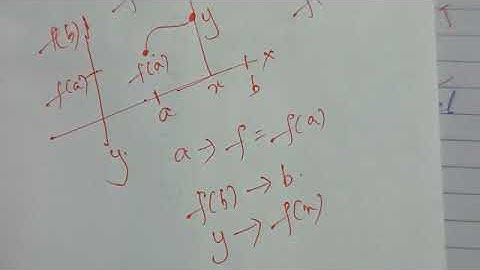 f(b)
y
f(a)
f(a)
x
a
x
b
y
a → f = f(a)
f(b) → b.
y → f(x)